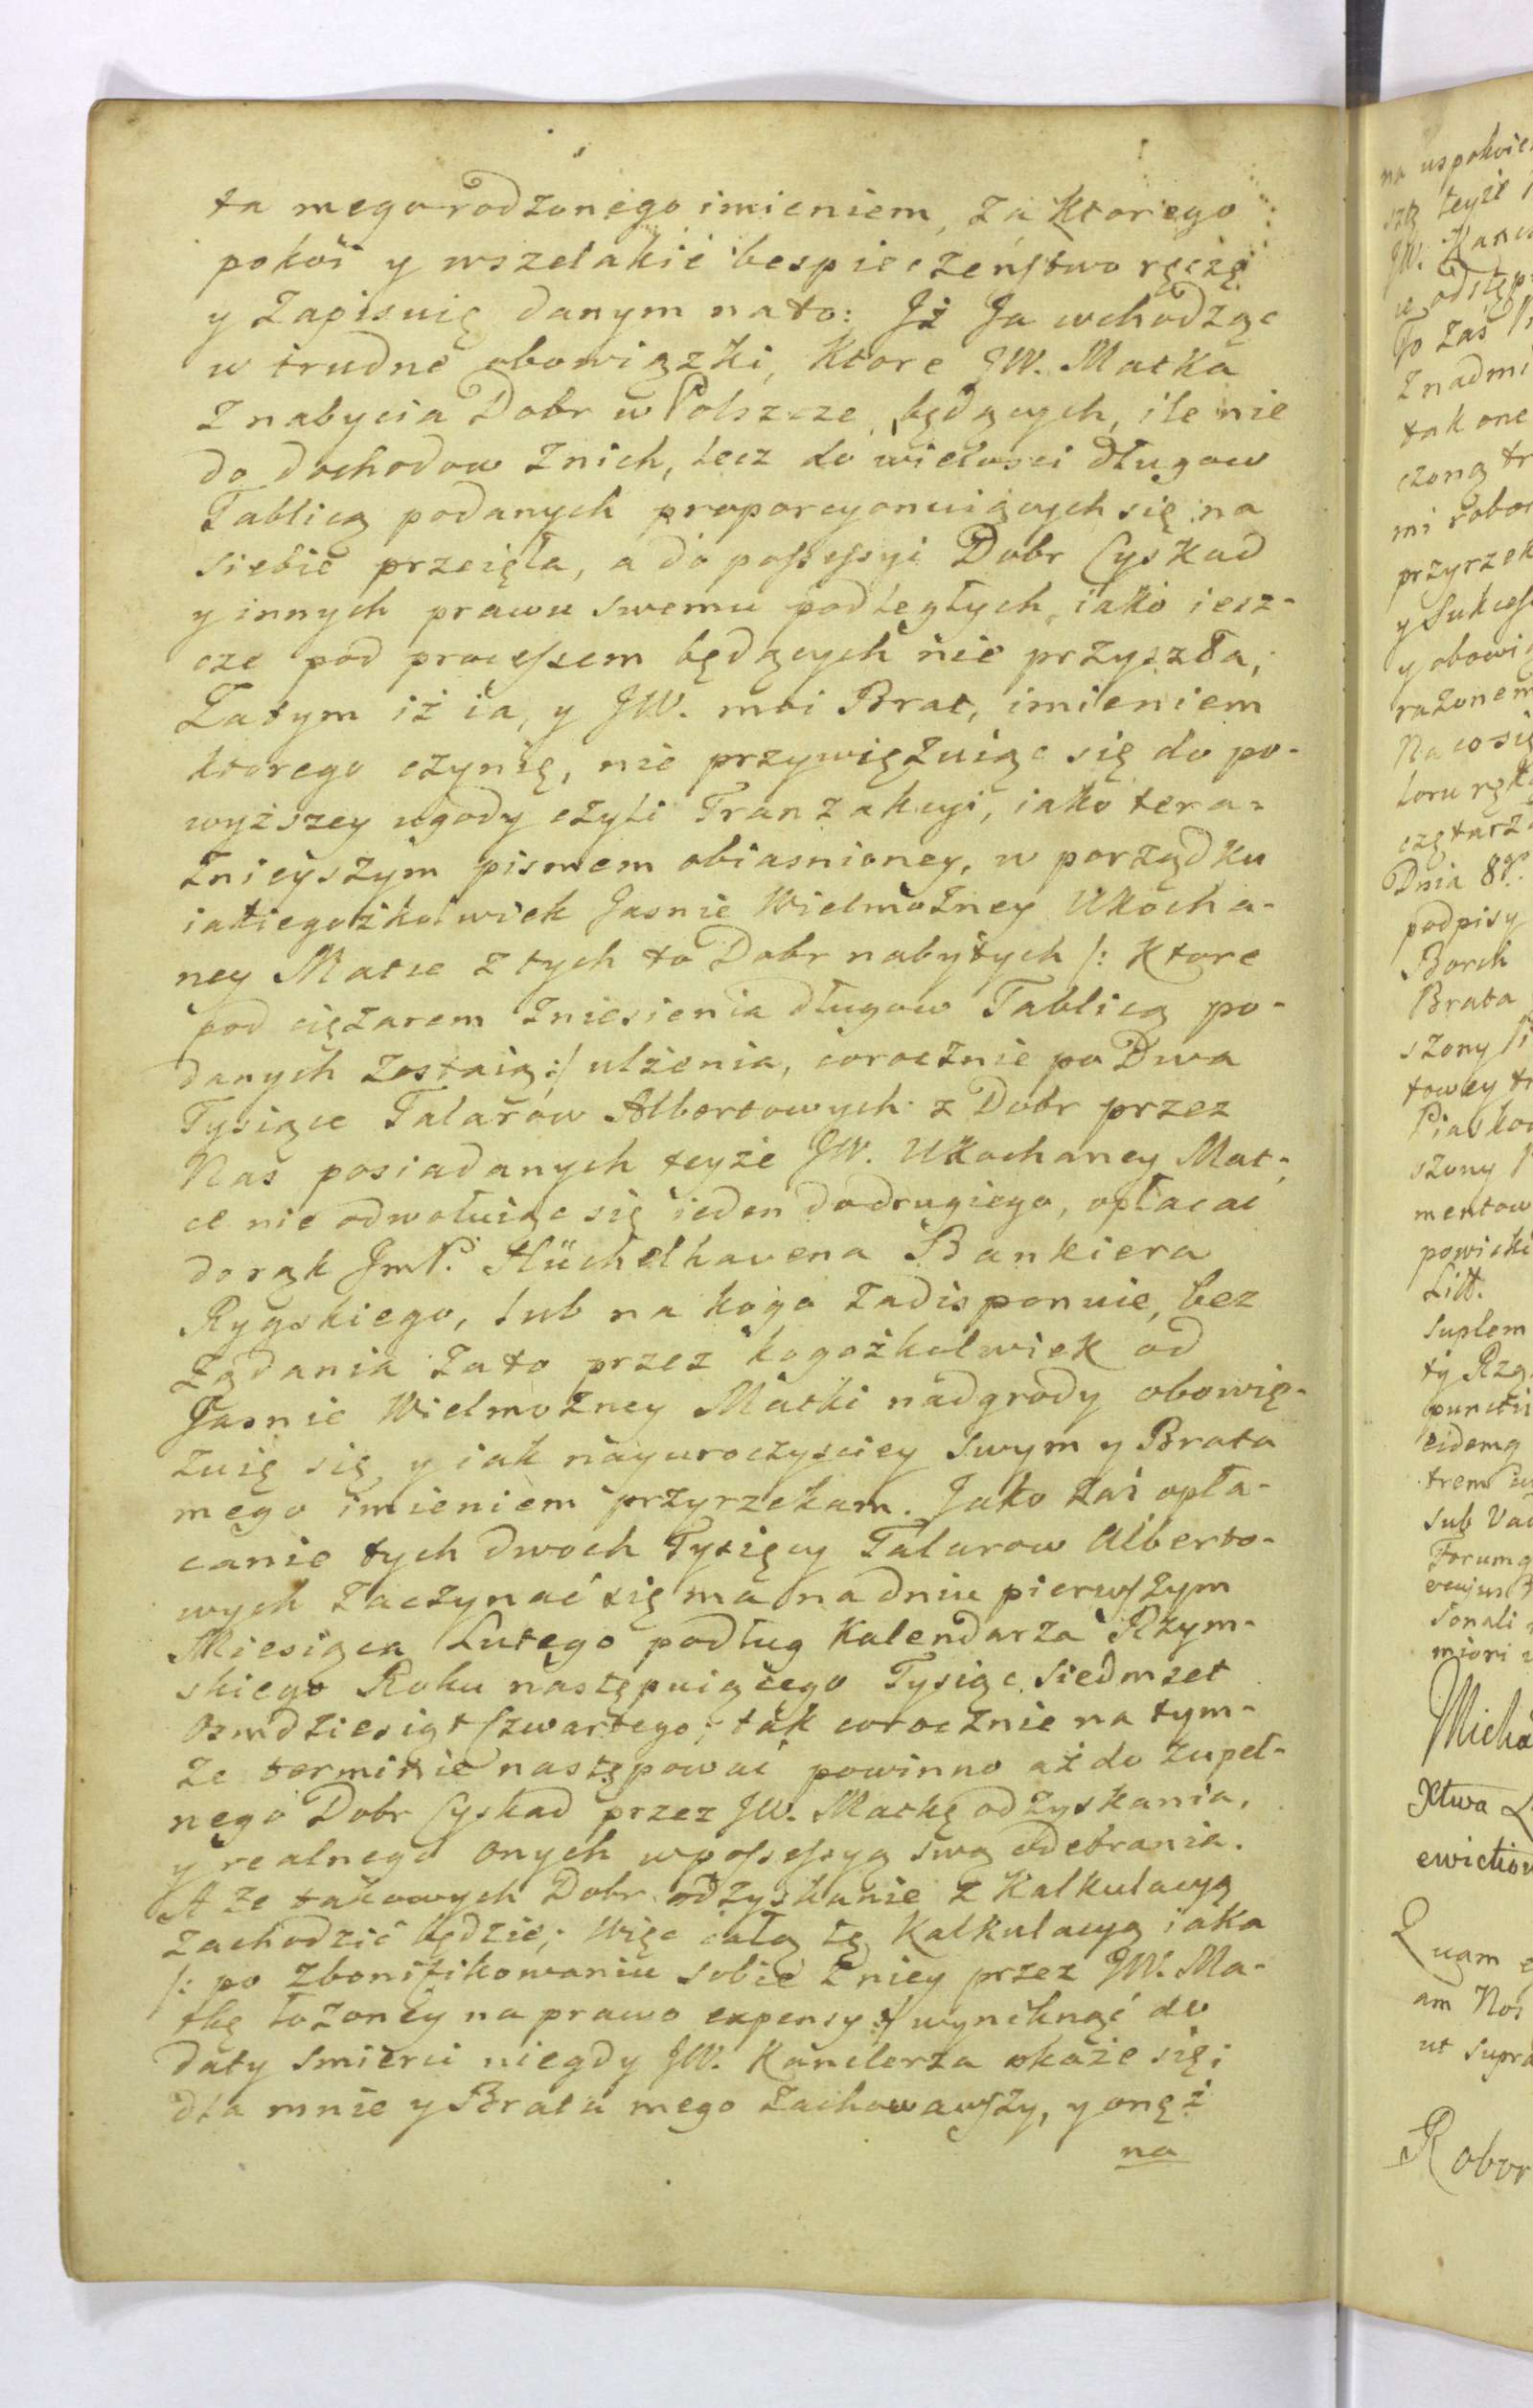 ta mego rodzonego imieniem, za ktorego
pokoi y wszelakie bespieczeństwo ręczę
y zapisuię danym na to: Jż Ja wchodząc
w trudne obowiązki, ktore JW. Matka
z nabycia Dobr w Polszcze będących, ile nie
do dochodow z nich, lecz do wielosci długow
Tablicą podanych proporcyonuiących się na
siebie przeięła, a do possessyi Dobr Cyskad
y innych prawu swemu podległych, iako iesz-
cze pod processem będących nie przyszła;
Zatym iż ia, y JW. moi Brat, imieniem
ktorego czynię, nie przywięzuiąc się do po-
wyższey ugody czyli Tranzakcyi, iako tera-
znieyszym pismem obiasnioney, w porządku
iakiegożkolwiek Jasnie Wielmożney Ukocha-
ney Matce z tych to Dobr nabytych /: ktore
pod ciężarem zniesienia długow Tablicą po-
danych zostaią :/ ulżenia, corocznie po Dwa
Tysiące Talarow Albertowych z Dobr przez
Nas posiadanych teyże JW. Ukochaney Mat-
ce nie odwołuiąc się ieden do drugiego, opłacać
do rąk JmP. Hüchelhavena Bankiera
Rygskiego, lub na kogo zadisponuie, bez
żądania za to przez kogożkolwiek od
Jasnie Wielmożney Matki nadgrody obowię-
zuię się y iak nayuroczysciey swym y Brata
mego imieniem przyrzekam. Jako zaś opła-
canie tych dwoch Tysięcy Talarow Alberto-
wych zaczynać się ma na dniu pierwszym
Miesiąca Lutego podług Kalendarza Rzym-
skiego Roku następuiącego Tysiąc siedmset
osmdziesiąt Czwartego; tak corocznie na tym-
że terminie następować powinno aż do zupeł-
nego Dobr Cyskad przez JW. Matkę odzyskania,
y realnego onych w possessyą swą odebrania.
A że takowych Dobr odzyskanie z Kalkulacyą
zachodzić będzie; Więc całą tę Kalkulacyą iaka
/: po zbonifikowaniu sobie z niey przez JW. Ma-
tkę łożoney na prawo expensy :/ wyniknąć do
daty smierci niegdy JW. Kanclerza okaże się;
dla mnie y Brata mego zachowawszy, y onęż
na
na uspokoie
teyże
JW. Kanc
To zaś
tak one
czoną tr
mi robo
przyrzek
y Sukces
y obowi
rażonem
Na co się
Dnia 8go
podpisy
Borch
Brata
szony
towey
Piasko
szony
mentow
powicki
Litt.
Suplem
ty Rzą
puncti
eidemq
trem
sub Vad
Forumq
sonali
miori
Micha
Xtwa
eviction
Quam
am Nos
ut supra
Robor